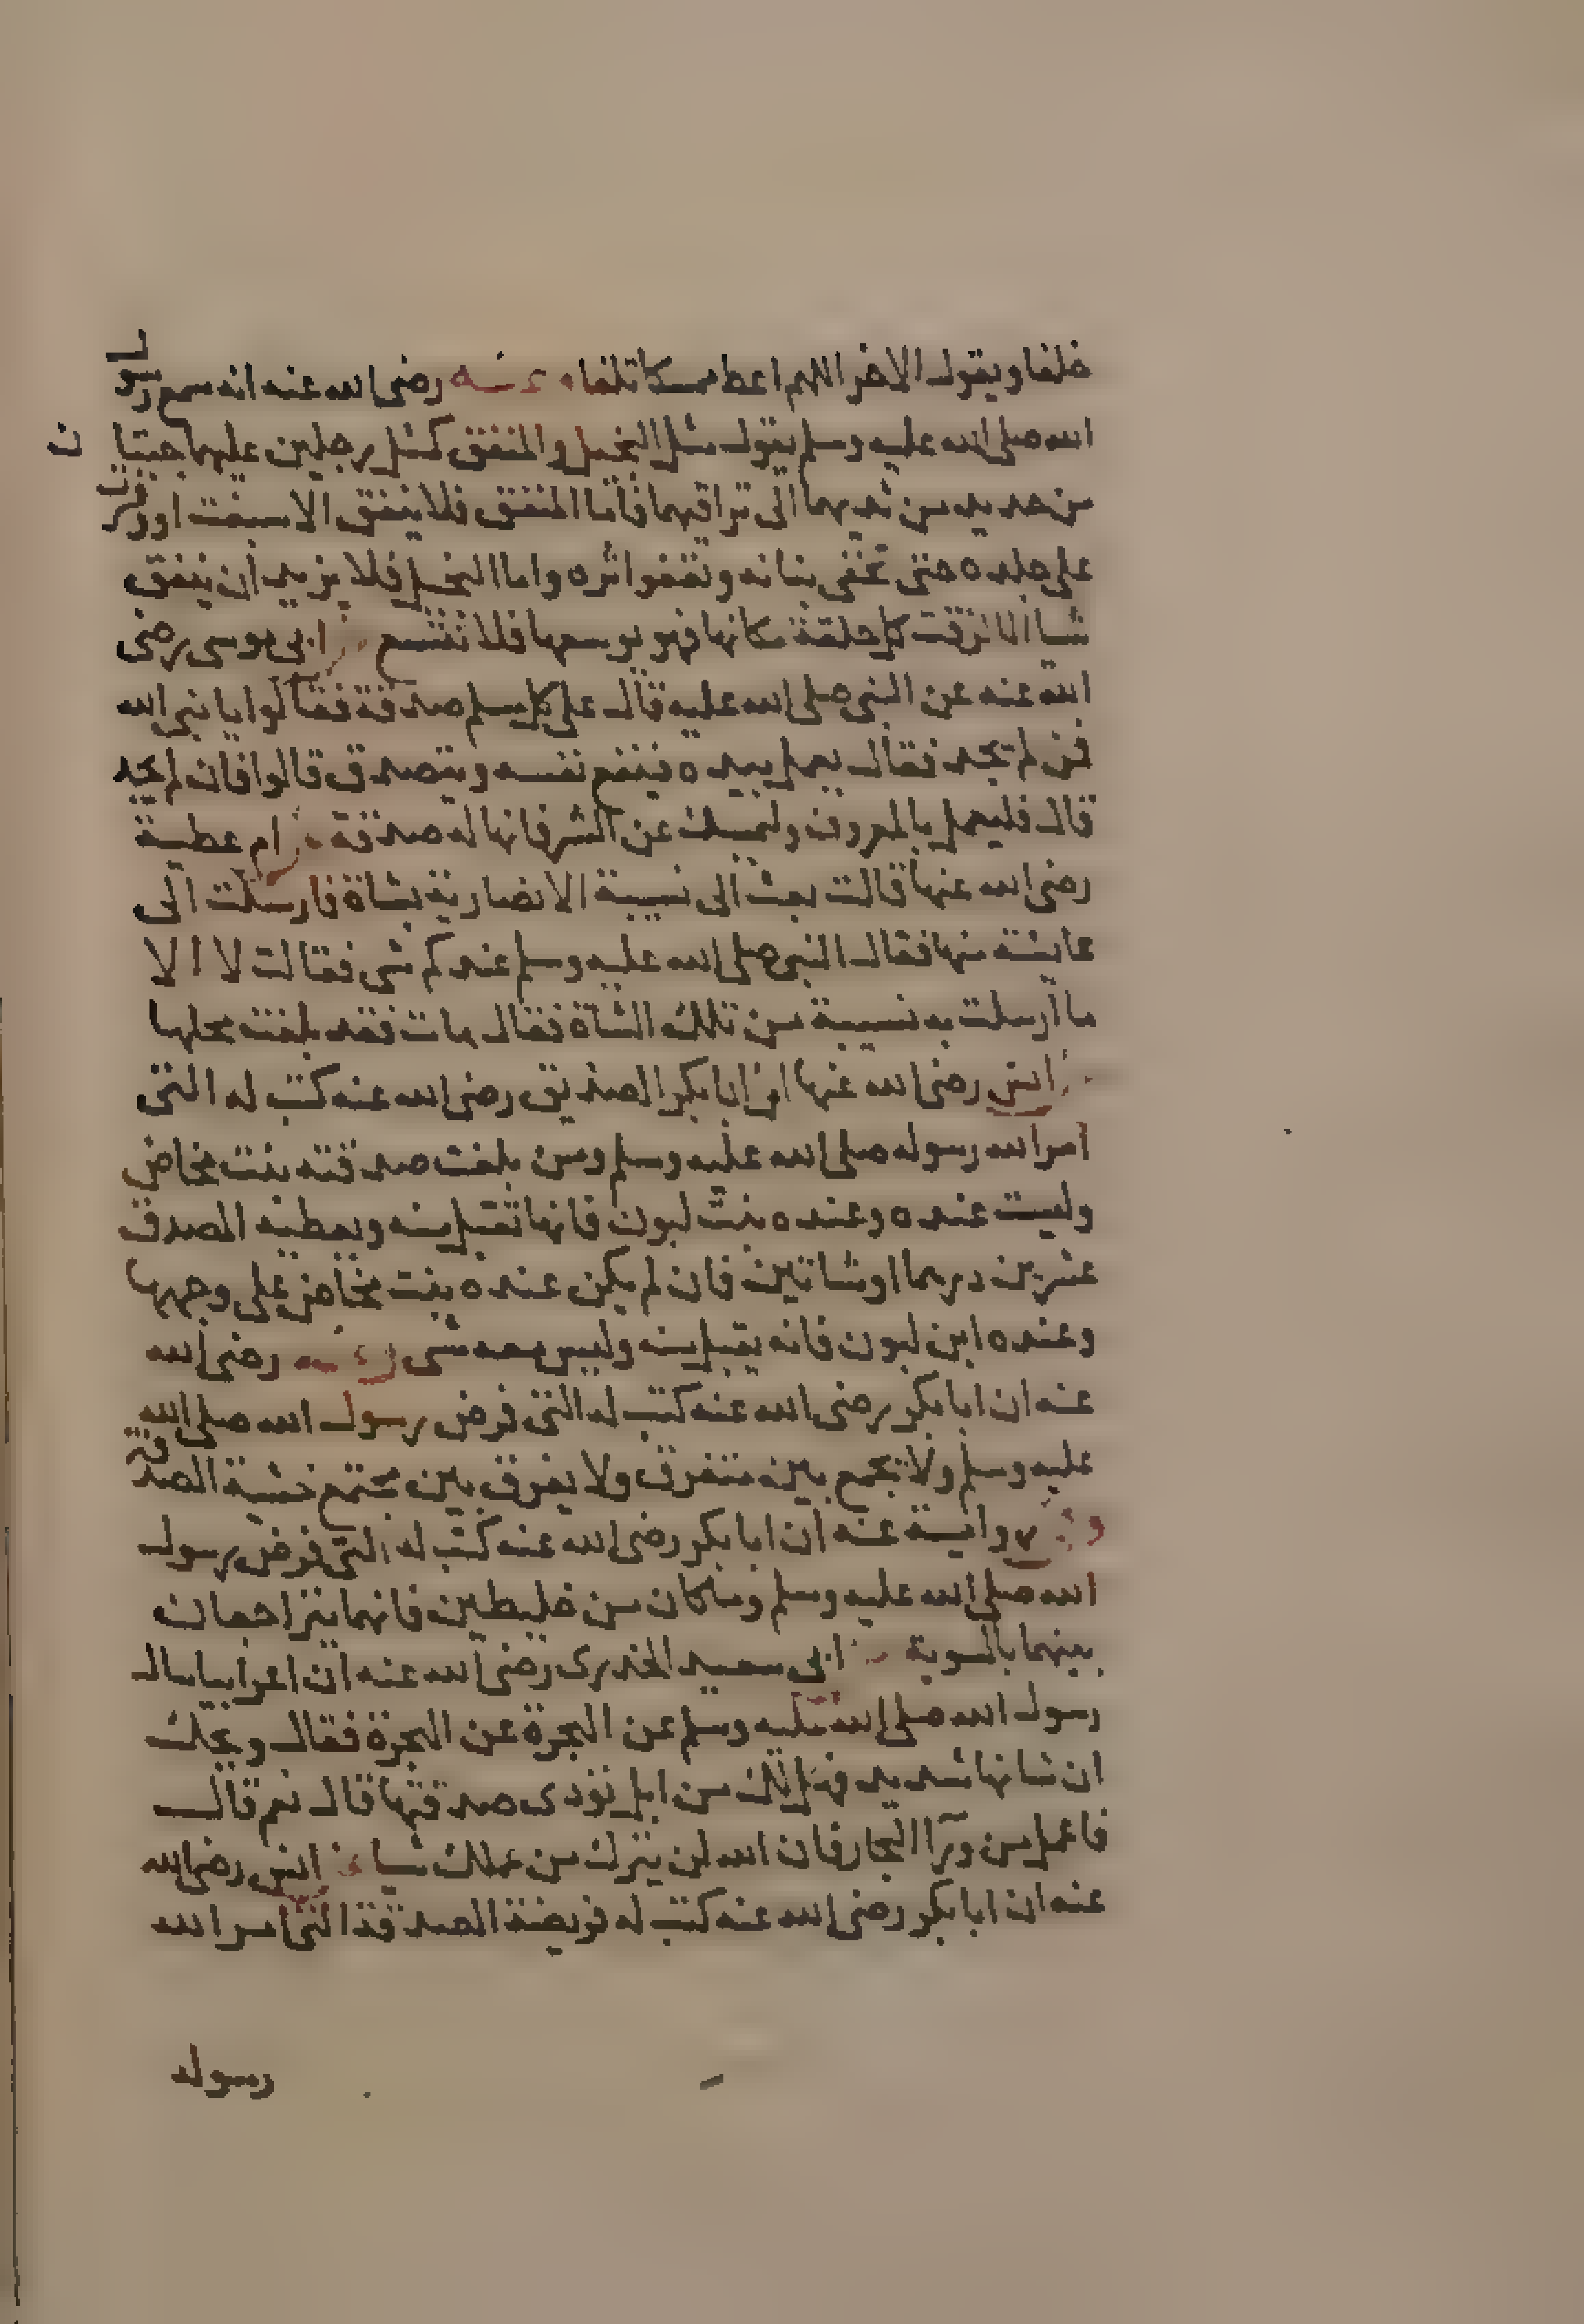 خلفا ويقول الاخر اللهم اعط ممسكا تلفا وعنه رضى الله عنه انه سمع رسول
الله صلى الله عليه وسلم يقول مثل البخيل والمنفق كمثل رجلين عليهما جبتان
من حديد من ثديهما الى تراقيهما فاما المنفق فلا ينفق الا سبغت او وفرت
على جلده حتى تخفى بنانه وتعفوا اثره واما البخيل فلا يريد ان ينفق
شيا الا لزقت كل حلقة مكانها فهو يوسعها فلا تتسع عن ابى موسى رضى
الله عنه عن النبى صلى الله عليه قال على كل مسلم صدقة فقالوا يا نبى الله
فمن لم يجد فقال يعمل بيده فينفع نفسه ويتصدق قالوا فان لم يجد
قال فليعمل بالمعروف وليمسك عن الشر فانها له صدقة عن ام عطية
رضى الله عنها قالت بعث الى نسيبة الانصارية بشاة فارسلت الى
عايشة منها فقال النبى صلى الله عليه وسلم عندكم شى فقالت لا الا
ما ارسلت به نسيبة من تلك الشاة فقال هات فقد بلغت محلها
عن انس رضى الله عنها ان ابا بكر الصديق رضى الله عنه كتب له التى
امر الله رسوله صلى الله عليه وسلم ومن بلغت صدقته بنت مخاض
وليست عنده وعنده بنت لبون فانها تقبل منه ويعطيه المصدق
عشرين درهما او شاتين فان لم يكن عنده بنت مخاض على وجهها
وعنده ابن لبون فانه يقبل منه وليس معه شى وعنه رضى الله
عنه ان ابا بكر رضى الله عنه كتب له التى فرض رسول الله صلى الله
عليه وسلم ولا يجمع بين متفرق ولا يفرق بين مجتمع خشية الصدقة
وفى رواية عنه ان ابا بكر رضى الله عنه كتب له التى فرض رسول
الله صلى الله عليه وسلم وما كان من خليطين فانهما يتراجعان
بينهما بالسوية عن ابى سعيد الخدرى رضى الله عنه ان اعرابيا سال
رسول الله صلى الله عليه وسلم عن الهجرة عن الهجرة فقال ويحك
ان شانها شديد فهل لك من ابل تؤدى صدقتها قال نعم قال
فاعمل من ورآ البحار فان الله لن يترك من عملك شيا عن انس رضى الله
عنه ان ابا بكر رضى الله عنه كتب له فريضة الصدقة التى امر الله
رسوله